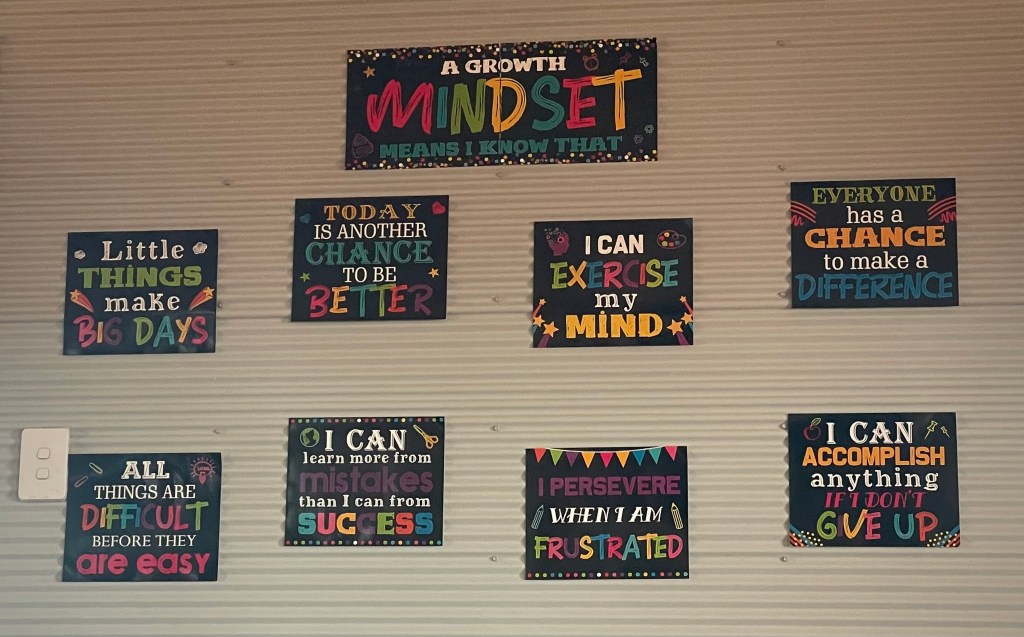 A GROWTH
MINDSET
MEANS I KNOW THAT
Little
THINGS
make
BIG DAYS
TODAY
IS ANOTHER
CHANCE
TO BE
BETTER
I CAN
EXERCISE
my
MIND
EVERYONE
has a
CHANCE
to make a
DIFFERENCE
ALL
THINGS ARE
DIFFICULT
BEFORE THEY
are easy
I CAN
learn more from
mistakes
than I can from
SUCCESS
I PERSEVERE
WHEN I AM
FRUSTRATED
I CAN
ACCOMPLISH
anything
IF I DON'T
GIVE UP